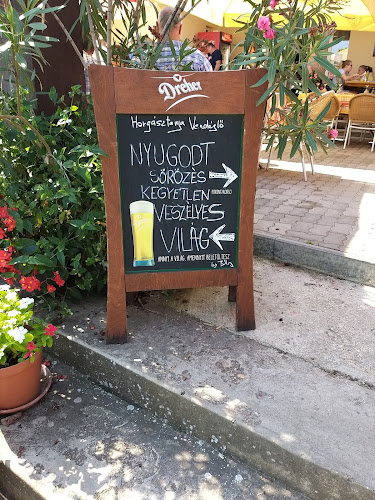 Dreher
Horgásztanya Vendéglő
NYUGODT
SÖRÖZÉS
KEGYETLEN
VESZÉLYES
VILÁG
#ANNYI A VILÁG, AMENNYIT BELEFÖLTESZ.